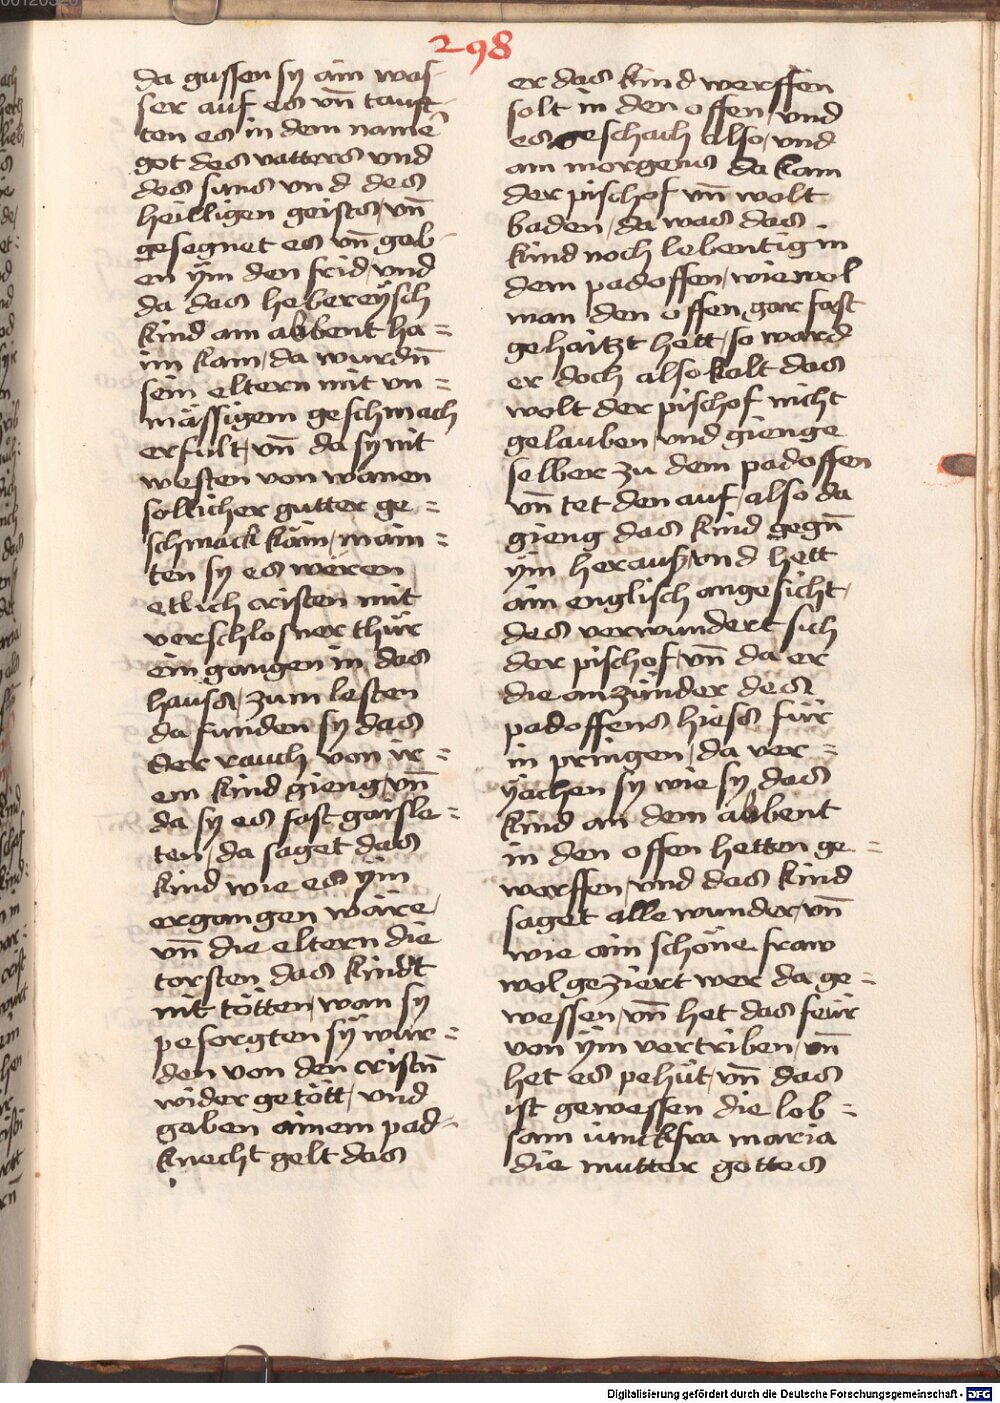 298
da gussen sy ain was-
ser auf es vn̄ tauft-
ten es in dem namē
got des vatters vnd
des suns vnd des
heilligen geists, vn̄
gesegnet es vn̄ gab-
en ÿm den frid, vnd
da das hebereÿsch
kind am abbent ha=
im kam, da wurdn̄
sein eltern mit vn=
mässigem geschmach
erfult, vn̄ da sy nit
westen von wanen
sollicher gutter ge=
schmack käm, main=
ten sy es weren
etlich cristen mit
verschlosner thür
ein gangen in das
hauss, zum lesten
da funden sy das
der rauch von ir=
em kind gieng, vn̄
da sy es fast gaisle=
ten, da saget das
kind wie es ÿm
ergangen wäre,
vn̄ die eltern die
torsten das kindt
nit tötten, wan sy
pesorgten sÿ wur=
den von den cristn̄
wider getött, vnd
gaben ainem pad-
knecht gelt das
er das kind werffen
solt in den offen, vnd
es geschach also, vnd
am morgens da kam
der pischof vn̄ wolt
baden, da was das
kind noch lebentig in
dem padoffen, wie wol
man den offen gar fast
gehaitzt hett, so ward
er doch also kalt das
wolt der pischof nicht
gelauben, vnd gienge
selber zu dem padoffen
vn̄ tet den auf, also da
gieng das kind gegn̄
ÿm herauß, vnd hett
ain englisch angesicht,
des verwundert sich
der pischof, vn̄ da er
die anzünder des
padoffens hiess für
in pringen, da ver=
ÿachen sy wie sy das
kind an dem abbent
in den offen hetten ge=
worffen, vnd das kind
saget alle wunder, vn̄
wie ain schöne fraw
wol geziert wer da ge=
wessen, vn̄ het das feür
von ÿm vertriben, vn̄
het es pehüt, vn̄ das
ist gewessen die lob=
sam iunckfra maria
die mutter gottes
Digitalisierung gefördert durch die Deutsche Forschungsgemeinschaft - DFG